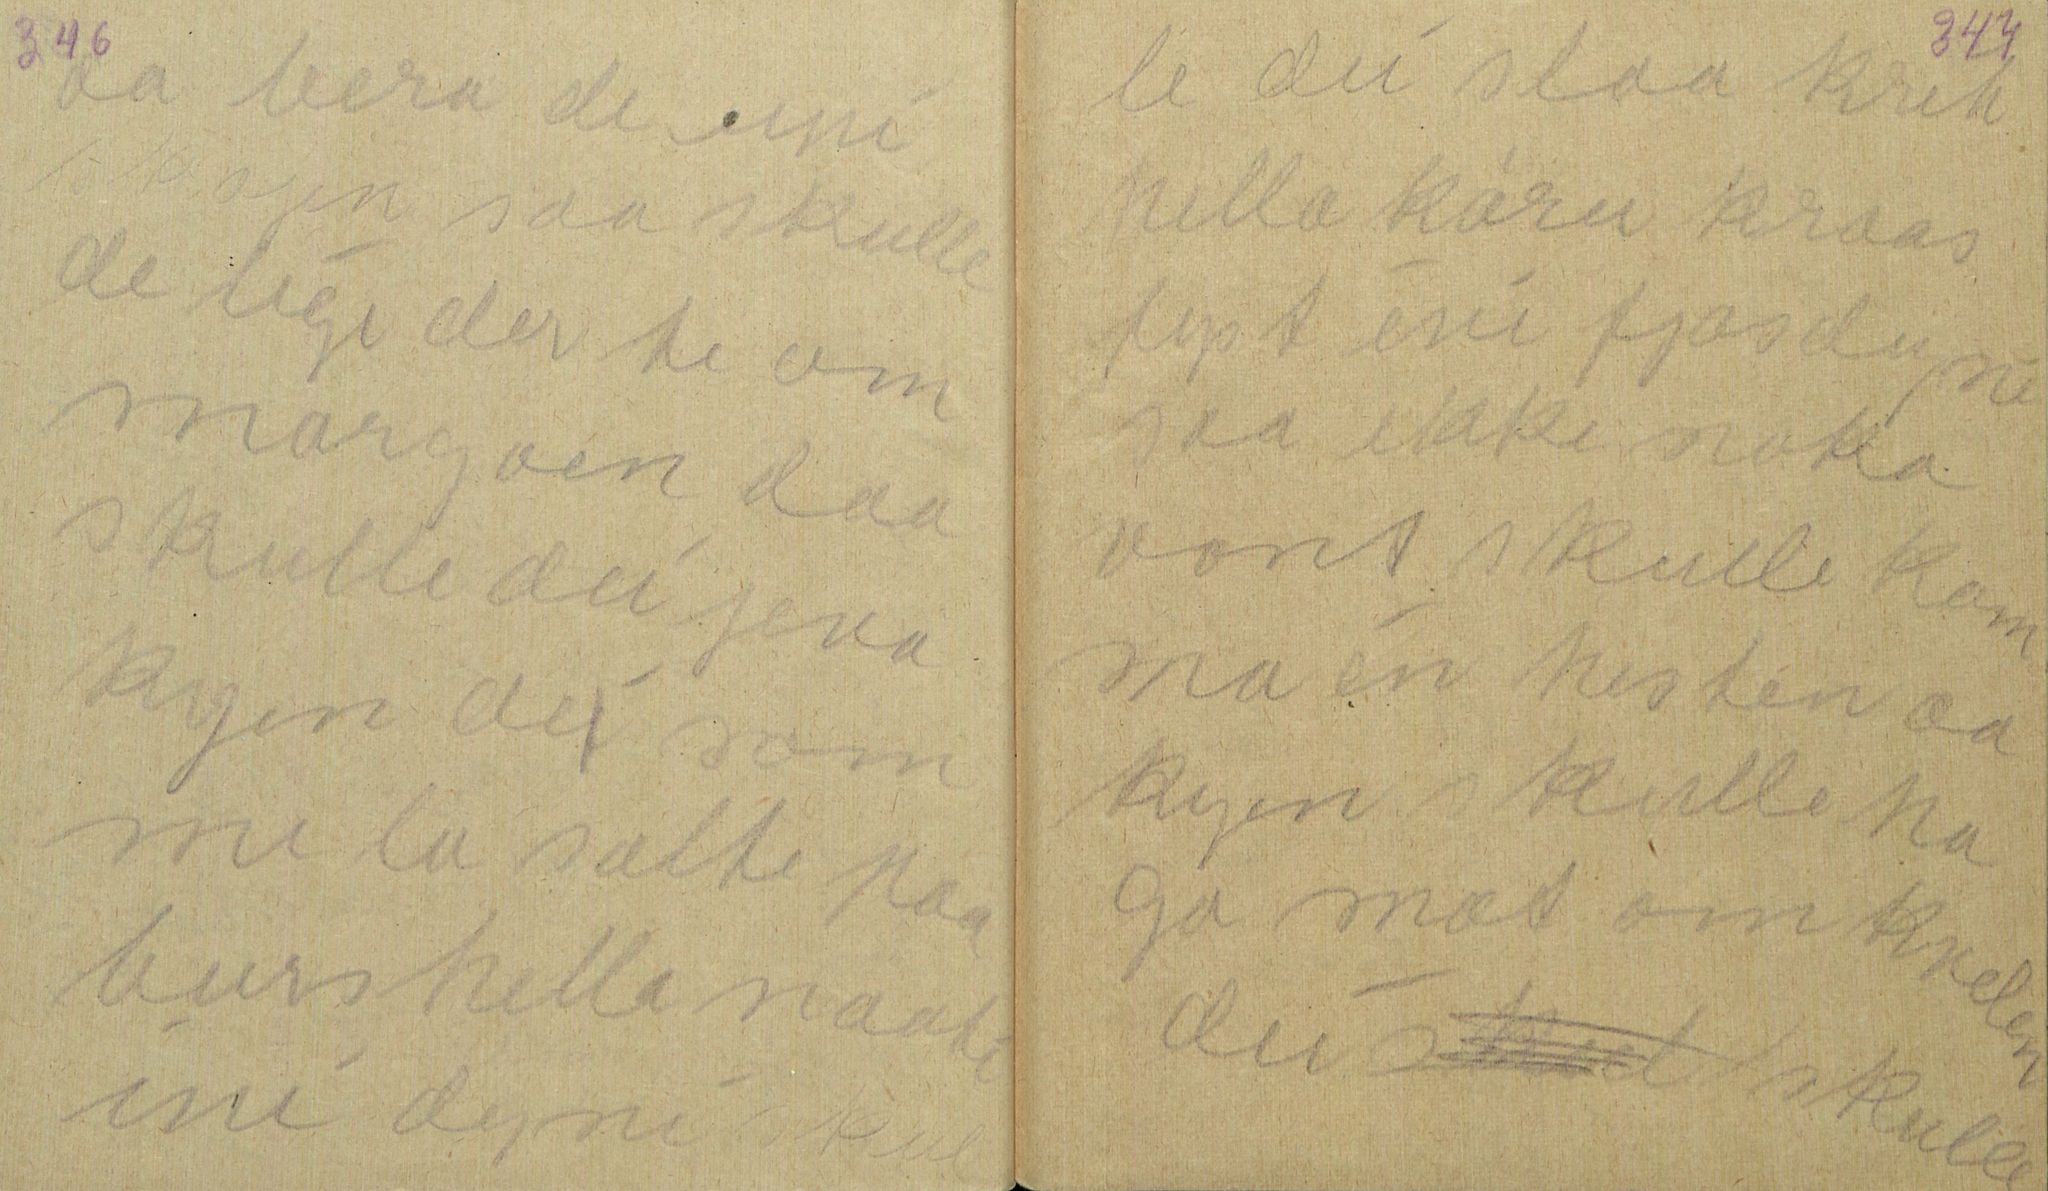 346
oa bera de ini
skojen saa skulle
de ligi der te om
morgoen daa
skulle dei jeva
kyen dei som
me la salte paa
burshella naake
ini dyni skul
347
le dei slaa kreh
hella kåru kraas
tept ini fjosdyni
saa ikke noka
vont skulle kom
ma in hesten oa
kyen skulle ha
ga mat om kvelen
deis skulle